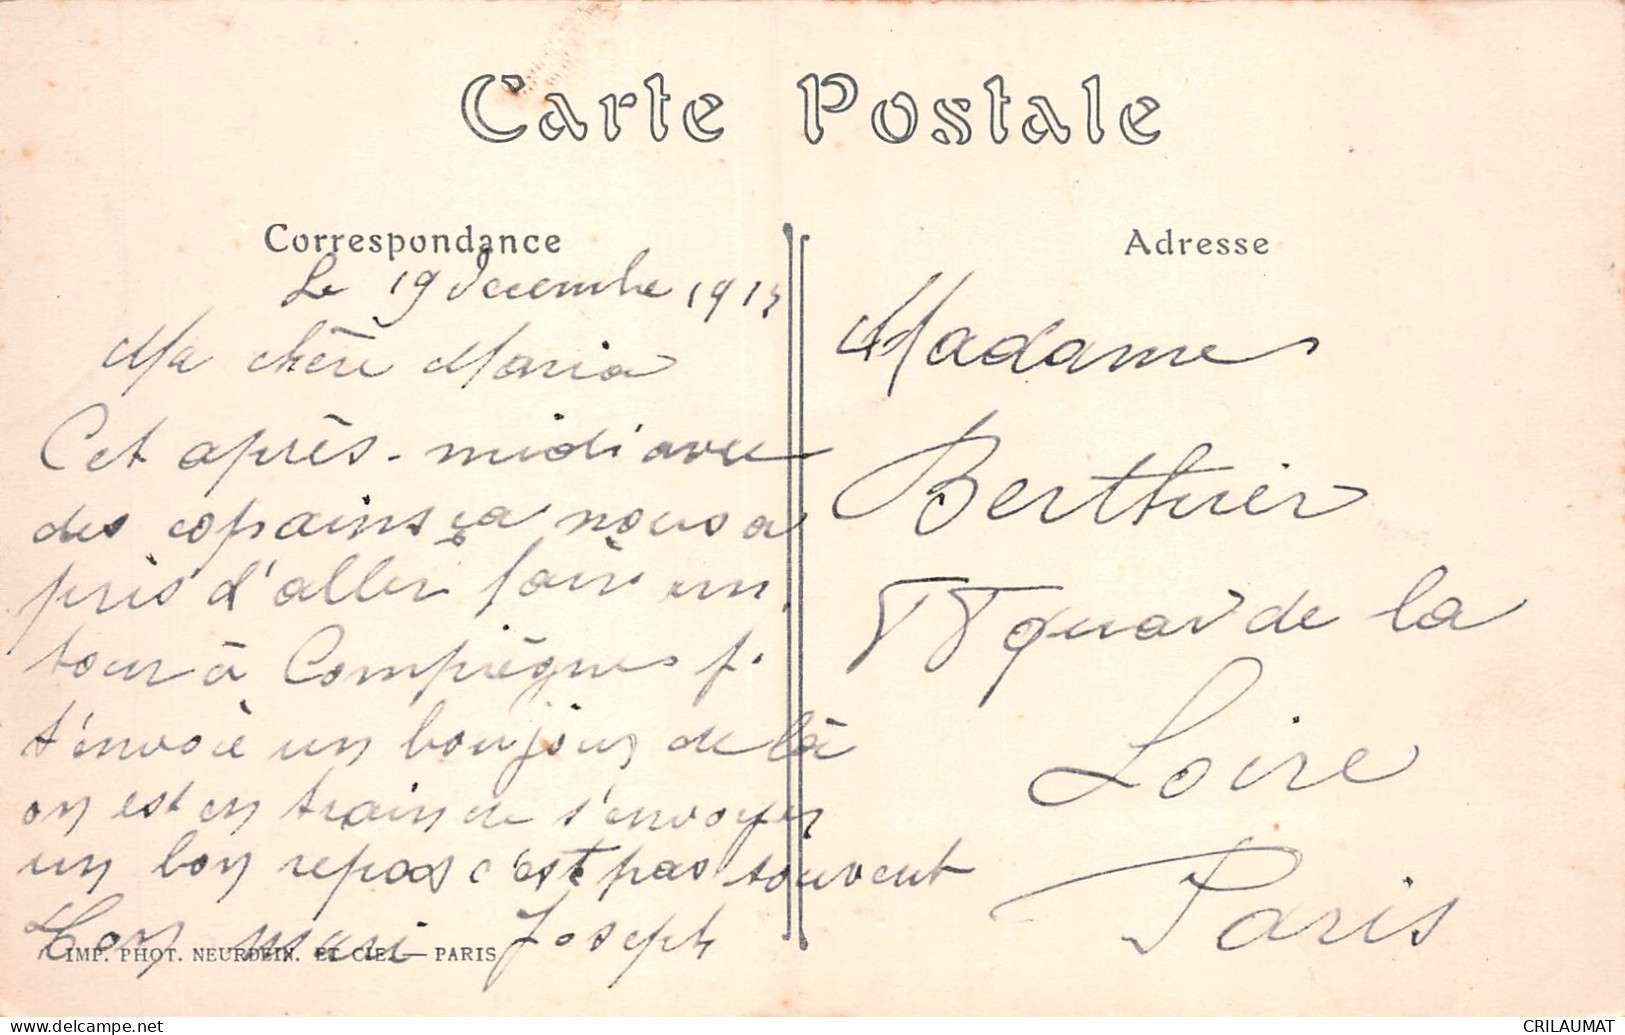 Carte Postale
Correspondance
Le 19 decembre 191
Ma chère Maria
Cet après-midi avec
des copains ça nous a
pris d'aller faire un
tour à Compiègne j.
t'envoie un boujour de là
on est en train de s'envoyer
un bon repas c'est pas souvent
Ton mari Joseph
IMP. PHOT. NEURDEIN. ET CIE. — PARIS
Adresse
Madame
Berthier
quai de la
Loire
Paris
CRILAUMAT
www.delcampe.net